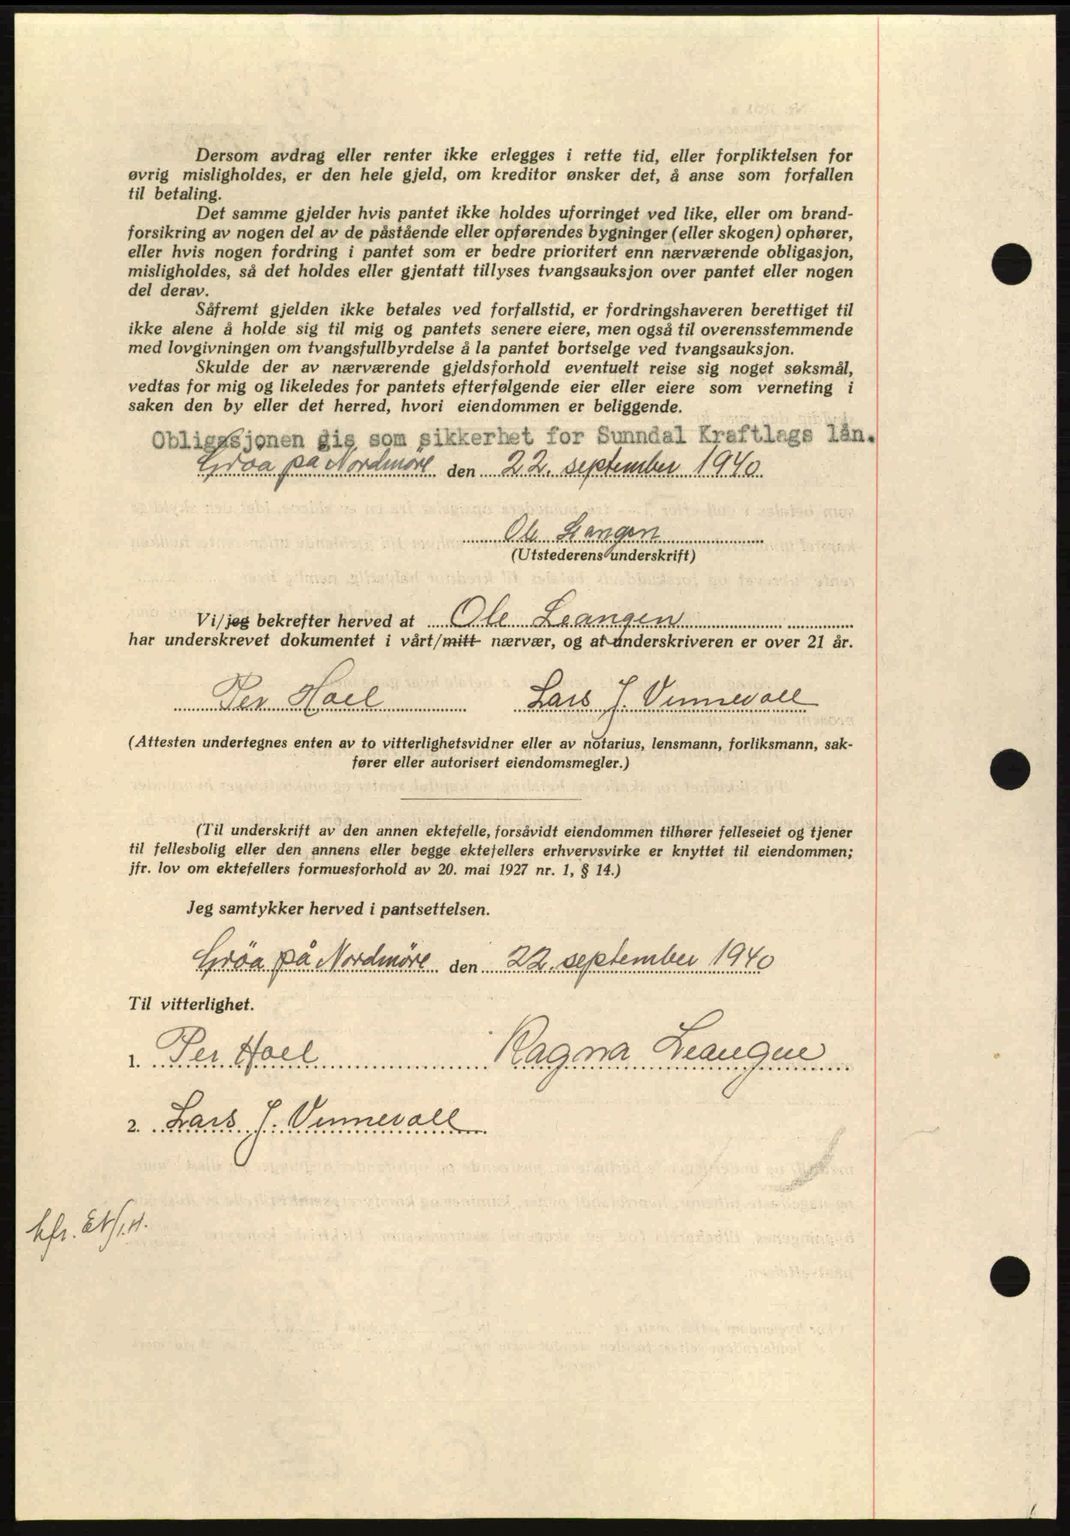 Dersom avdrag eller renter ikke erlegges i rette tid, eller forpliktelsen for
øvrig misligholdes, er den hele gjeld, om kreditor ønsker det, å anse som forfallen
til betaling.
Det samme gjelder hvis pantet ikke holdes uforringet ved like, eller om brand-
forsikring av nogen del av de påstående eller opførendes bygninger (eller skogen) ophører,
eller hvis nogen fordring i pantet som er bedre prioritert enn nærværende obligasjon,
misligholdes, så det holdes eller gjentatt tillyses tvangsauksjon over pantet eller nogen
del derav.
Såfremt gjelden ikke betales ved forfallstid, er fordringshaveren berettiget til
ikke alene å holde sig til mig og pantets senere eiere, men også til overensstemmende
med lovgivningen om tvangsfullbyrdelse å la pantet bortselge ved tvangsauksjon.
Skulde der av nærværende gjeldsforhold eventuelt reise sig noget søksmål,
vedtas for mig og likeledes for pantets efterfølgende eier eller eiere som verneting i
saken den by eller det herred, hvori eiendommen er beliggende.
Obligasjonen gis som sikkerhet for Sunndal Kraftlags lån.
Grøa på Nordmøre den 22. september 1940
Ole Leangen
(Utstederens underskrift)
Vi/jeg bekrefter herved at Ole Leangen
har underskrevet dokumentet i vårt/mitt nærvær, og at underskriveren er over 21 år.
Per Hoel Lars J. Vinnevoll
(Attesten undertegnes enten av to vitterlighetsvidner eller av notarius, lensmann, forliksmann, sak-
fører eller autorisert eiendomsmegler.)
(Til underskrift av den annen ektefelle, forsåvidt eiendommen tilhører felleseiet og tjener
til fellesbolig eller den annens eller begge ektefellers erhvervsvirke er knyttet til eiendommen;
jfr. lov om ektefellers formuesforhold av 20. mai 1927 nr. 1, § 14.)
Jeg samtykker herved i pantsettelsen.
Grøa på Nordmøre den 22. september 1940
Til vitterlighet.
1. Per Hoel Ragna Leangen
2. Lars J. Vinnevoll